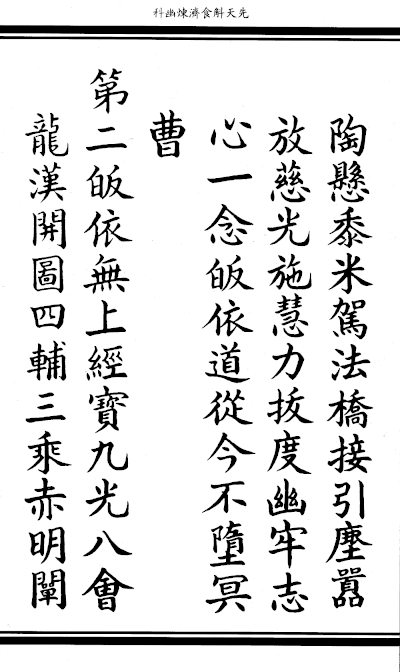 先天斛食濟煉幽科
陶懸黍米駕法橋接引塵囂
放慈光施慧力拔度幽牢志
心一念皈依道從今不墮冥
曹
第二皈依無上經寶九光八會
龍漢開圖四輔三乘赤明闡